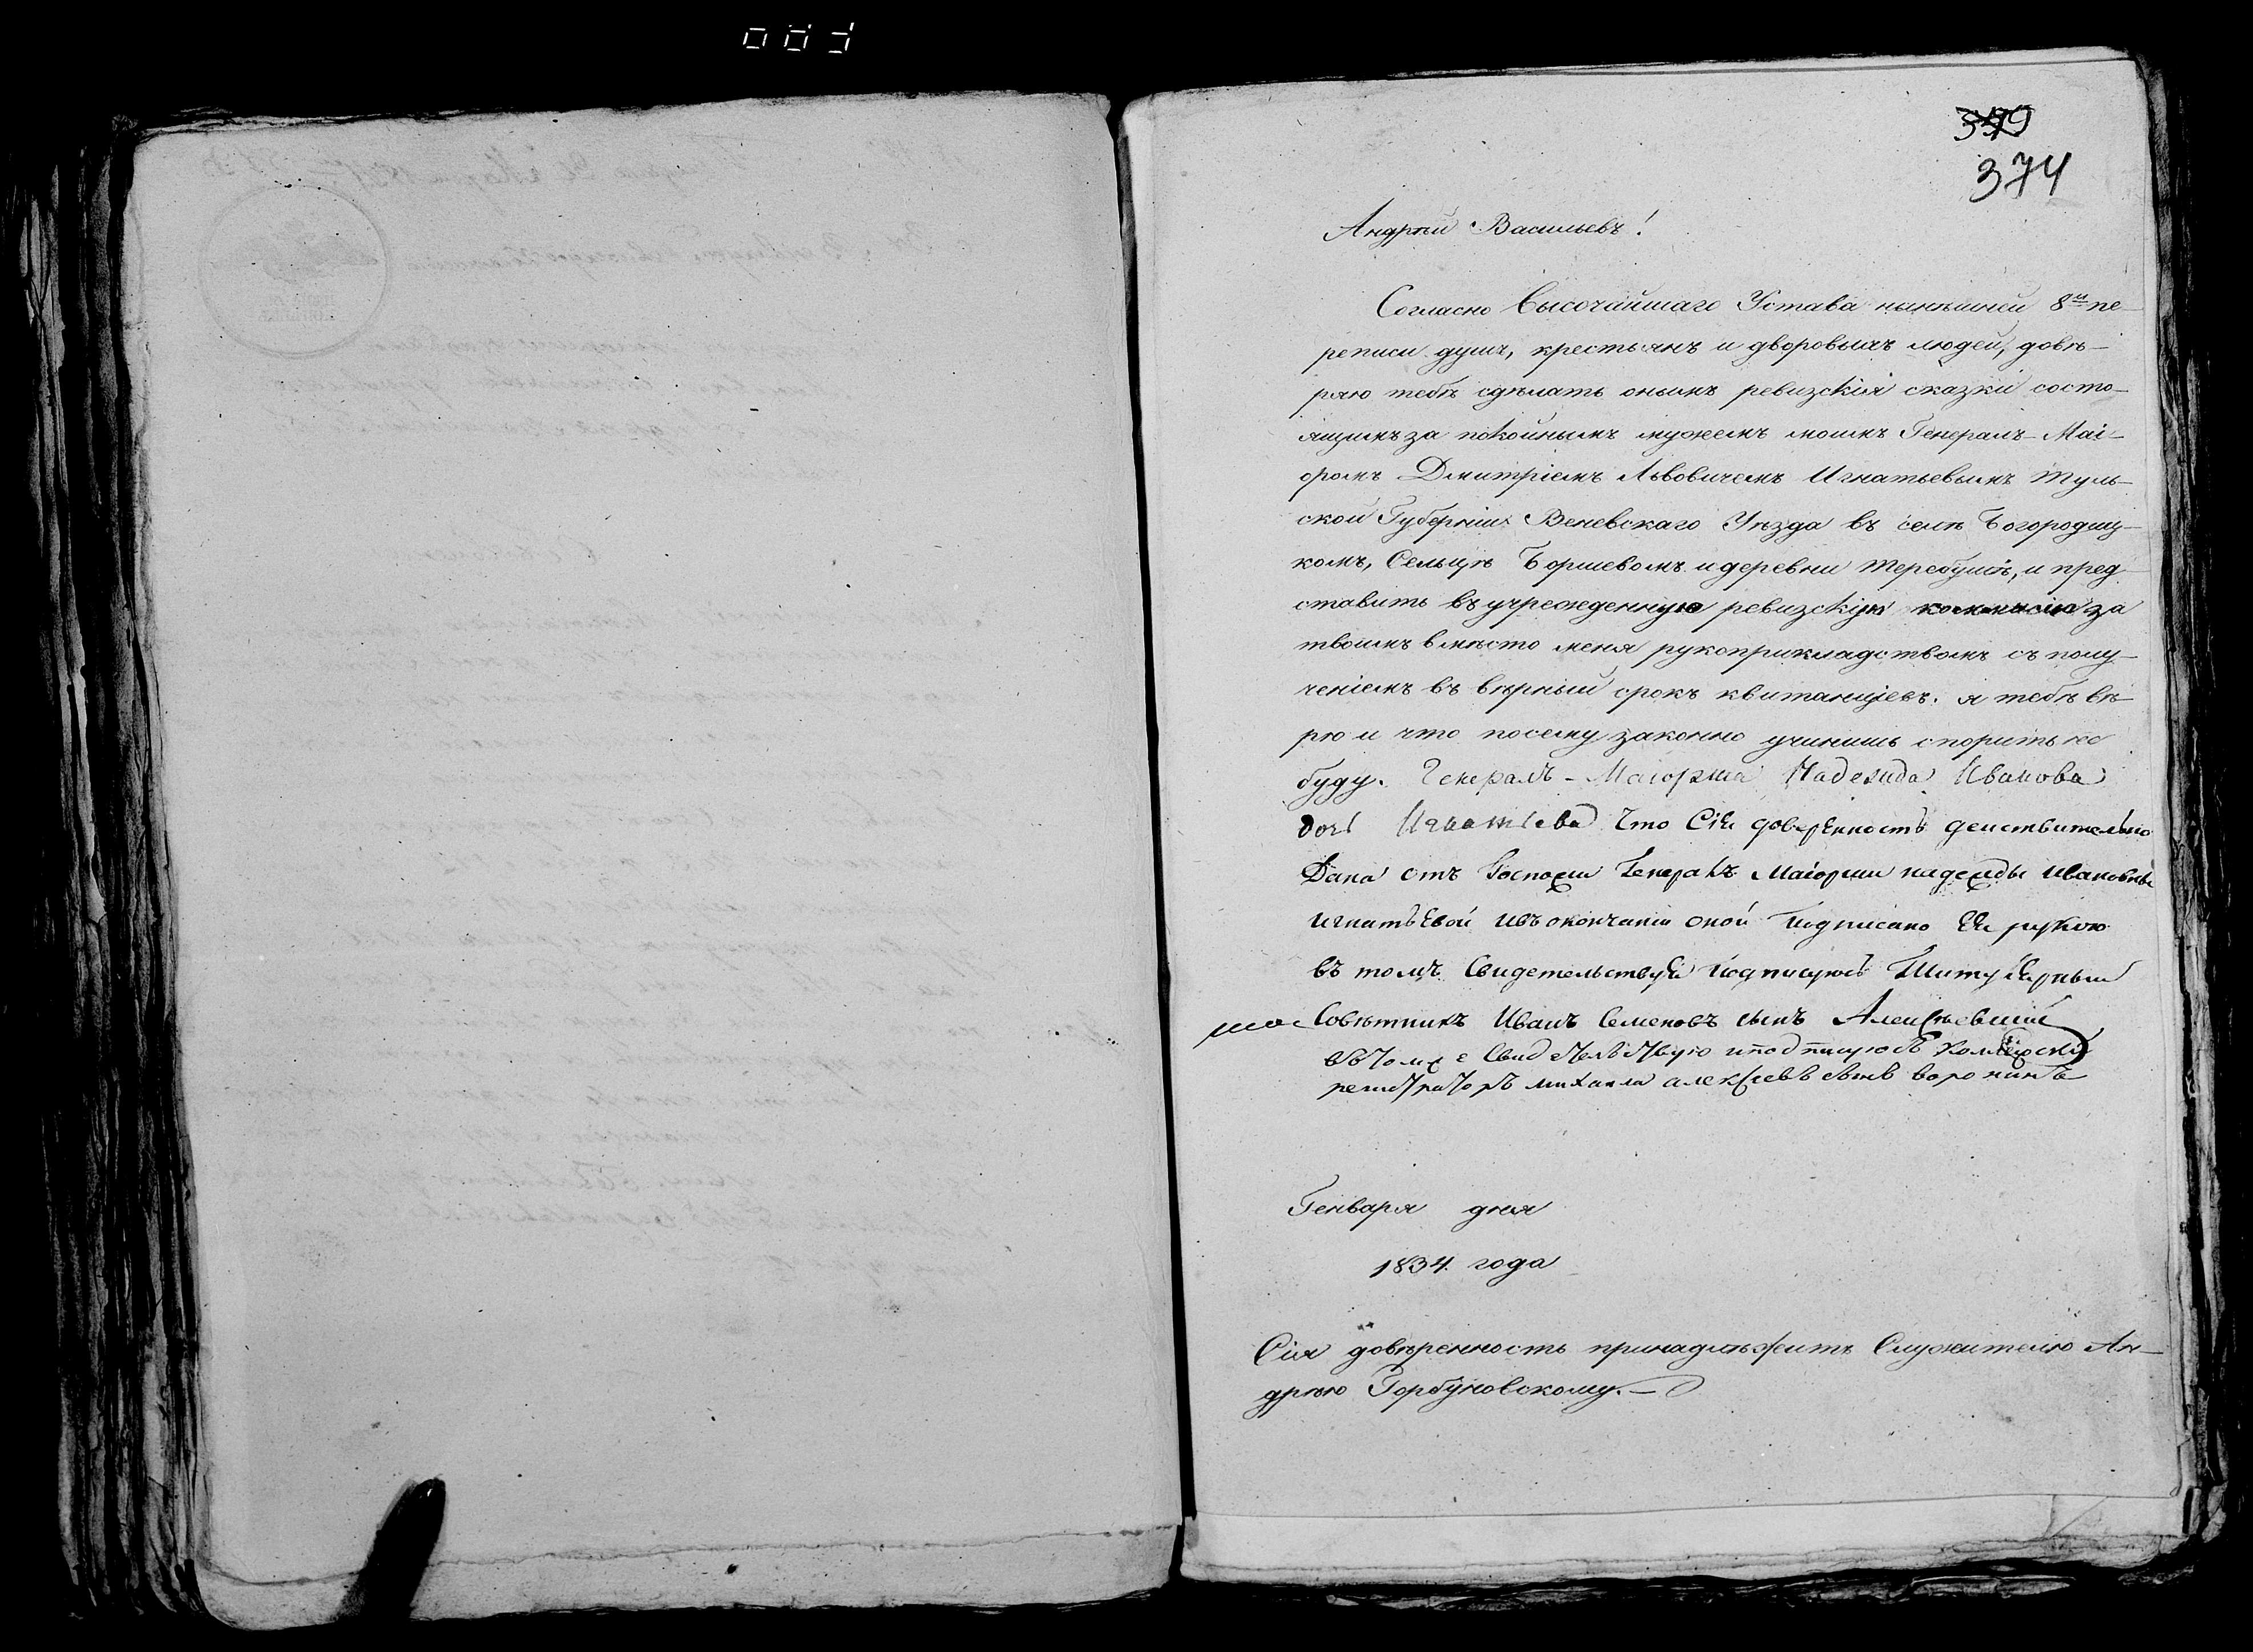 379
374
Андрей Васильевъ!
Согласно Высочайшаго Устава нынѣшней 8й пе-
реписи душъ, крестьянъ и дворовыхъ людей, довѣ-
ряю тебѣ сдѣлать онымъ ревизскія сказки состо-
ящимъ за покойнымъ мужемъ моимъ Генералъ-Маі-
оромъ Дмитріемъ Львовичемъ Игнатьевымъ Туль-
ской Губерніи Веневскаго Уѣзда въ селѣ Богородиц-
комъ, Сельцѣ Боршевомъ и деревни Теребушѣ, и пред
ставить въ учрежденную ревизскую коммисію за
твоимъ вмѣсто меня рукоприкладствомъ съ полу-
ченіемъ въ вѣрный срокъ квитанціевъ. я тебѣ вѣ-
рю и что посему законно учинишь спорить не
буду. Генералъ-Маіорша Надежда Иванова
дочь Игнатьева Что Сіе доверенность деиствительно
Дана отъ Госпожи Генералъ Маіорши надежды ивановны
игнатьевой ивъ окончаніи оной подписано Ее рукою
въ томъ Свидетельствуя подписуюсь Титулярный
Совѣтникъ Иванъ Семеновъ сынъ Алексѣевский
въ томже Свидетельствую иподписуюсь Колежский
регистраторъ михаила алексеевъ сынъ воронинъ
Генваря дня
1834 года
Сія довѣренность принадлѣжитъ Служителю Ан-
дрѣю Горбуновскому.